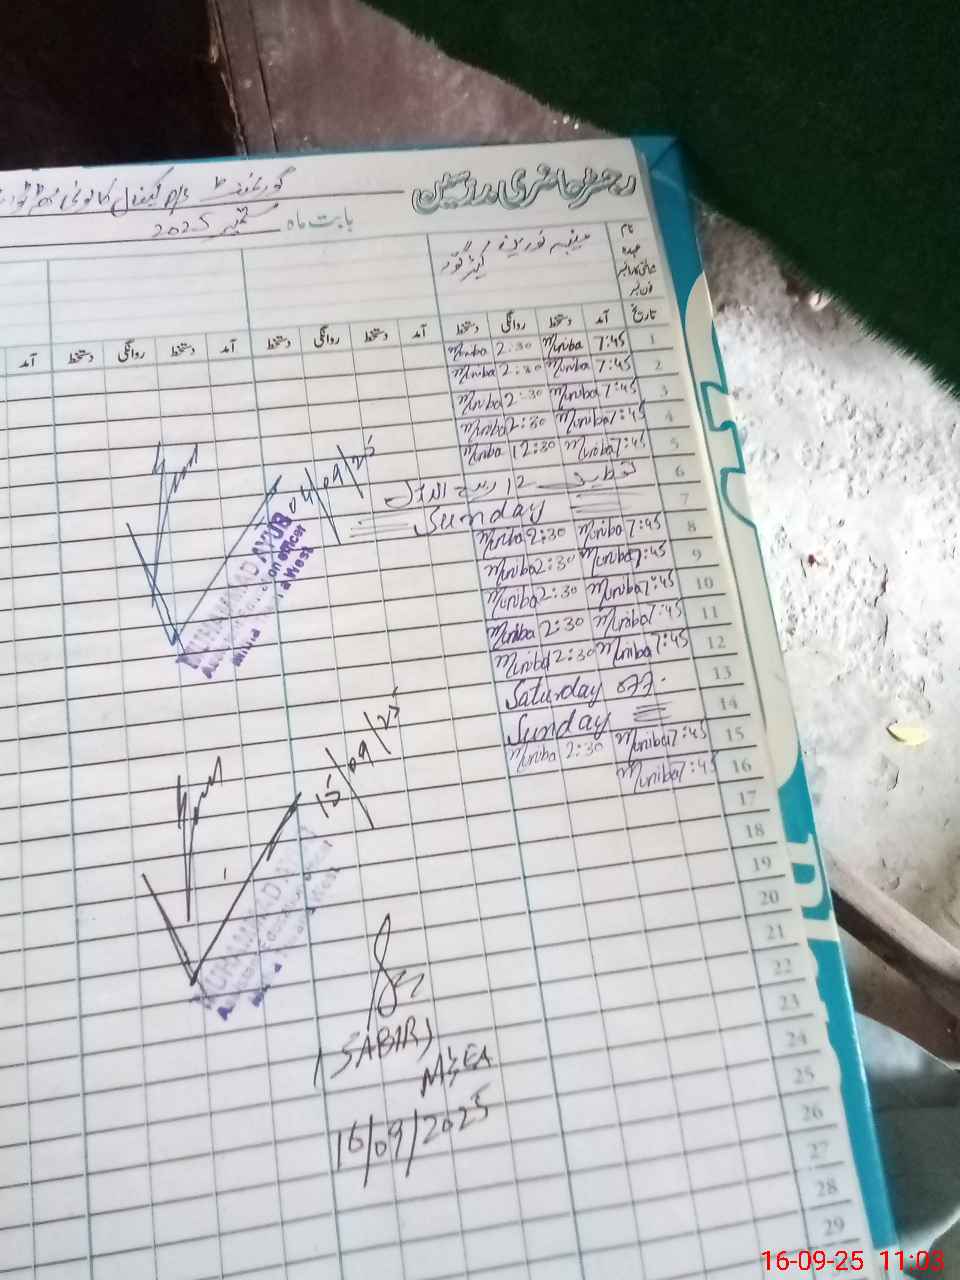 رجسٹر حاضری مدرسین
گورنمنٹ p/s
بابت ماہ ستمبر 2025
نام
عہدہ
منیبہ
تاریخ آمد دستخط روانگی دستخط آمد دستخط روانگی دستخط آمد دستخط روانگی دستخط آمد
1 7:45 Muniba 2:30 Muniba
2 7:45 Muniba 2:30 Muniba
3 7:45 Muniba 2:30 Muniba
4 7:45 Muniba 2:30 Muniba
5 7:45 Muniba 12:30 Muniba
6 تعطیل 12 ربیع الاول
7 Sunday
8 7:45 Muniba 2:30 Muniba
9 7:45 Muniba 2:30 Muniba
10 7:45 Muniba 2:30 Muniba
11 7:45 Muniba 2:30 Muniba
12 7:45 Muniba 2:30 Muniba
13 Saturday off.
14 Sunday
15 7:45 Muniba 2:30 Muniba
16 7:45 Muniba
17
18
19
20
21
22
23
24
25
26
27
28
29
04/09/25
MUHAMMAD AYUB
on officer
a West
15/09/25
MUHAMMAD
Education
West
(SABIR)
M&EA
16/09/2025
16-09-25 11:03